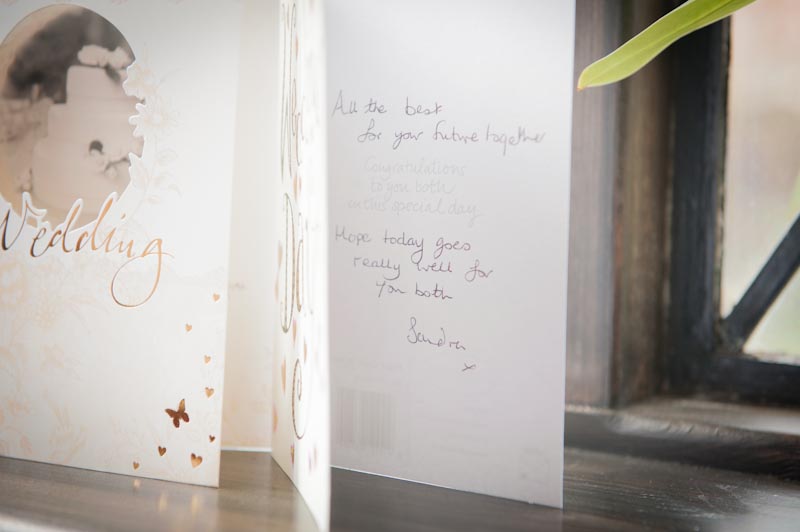 Wedding
All the best
for your future together
Congratulations
to you both
on this special day
Hope today goes
really well for
you both
Sandra
x